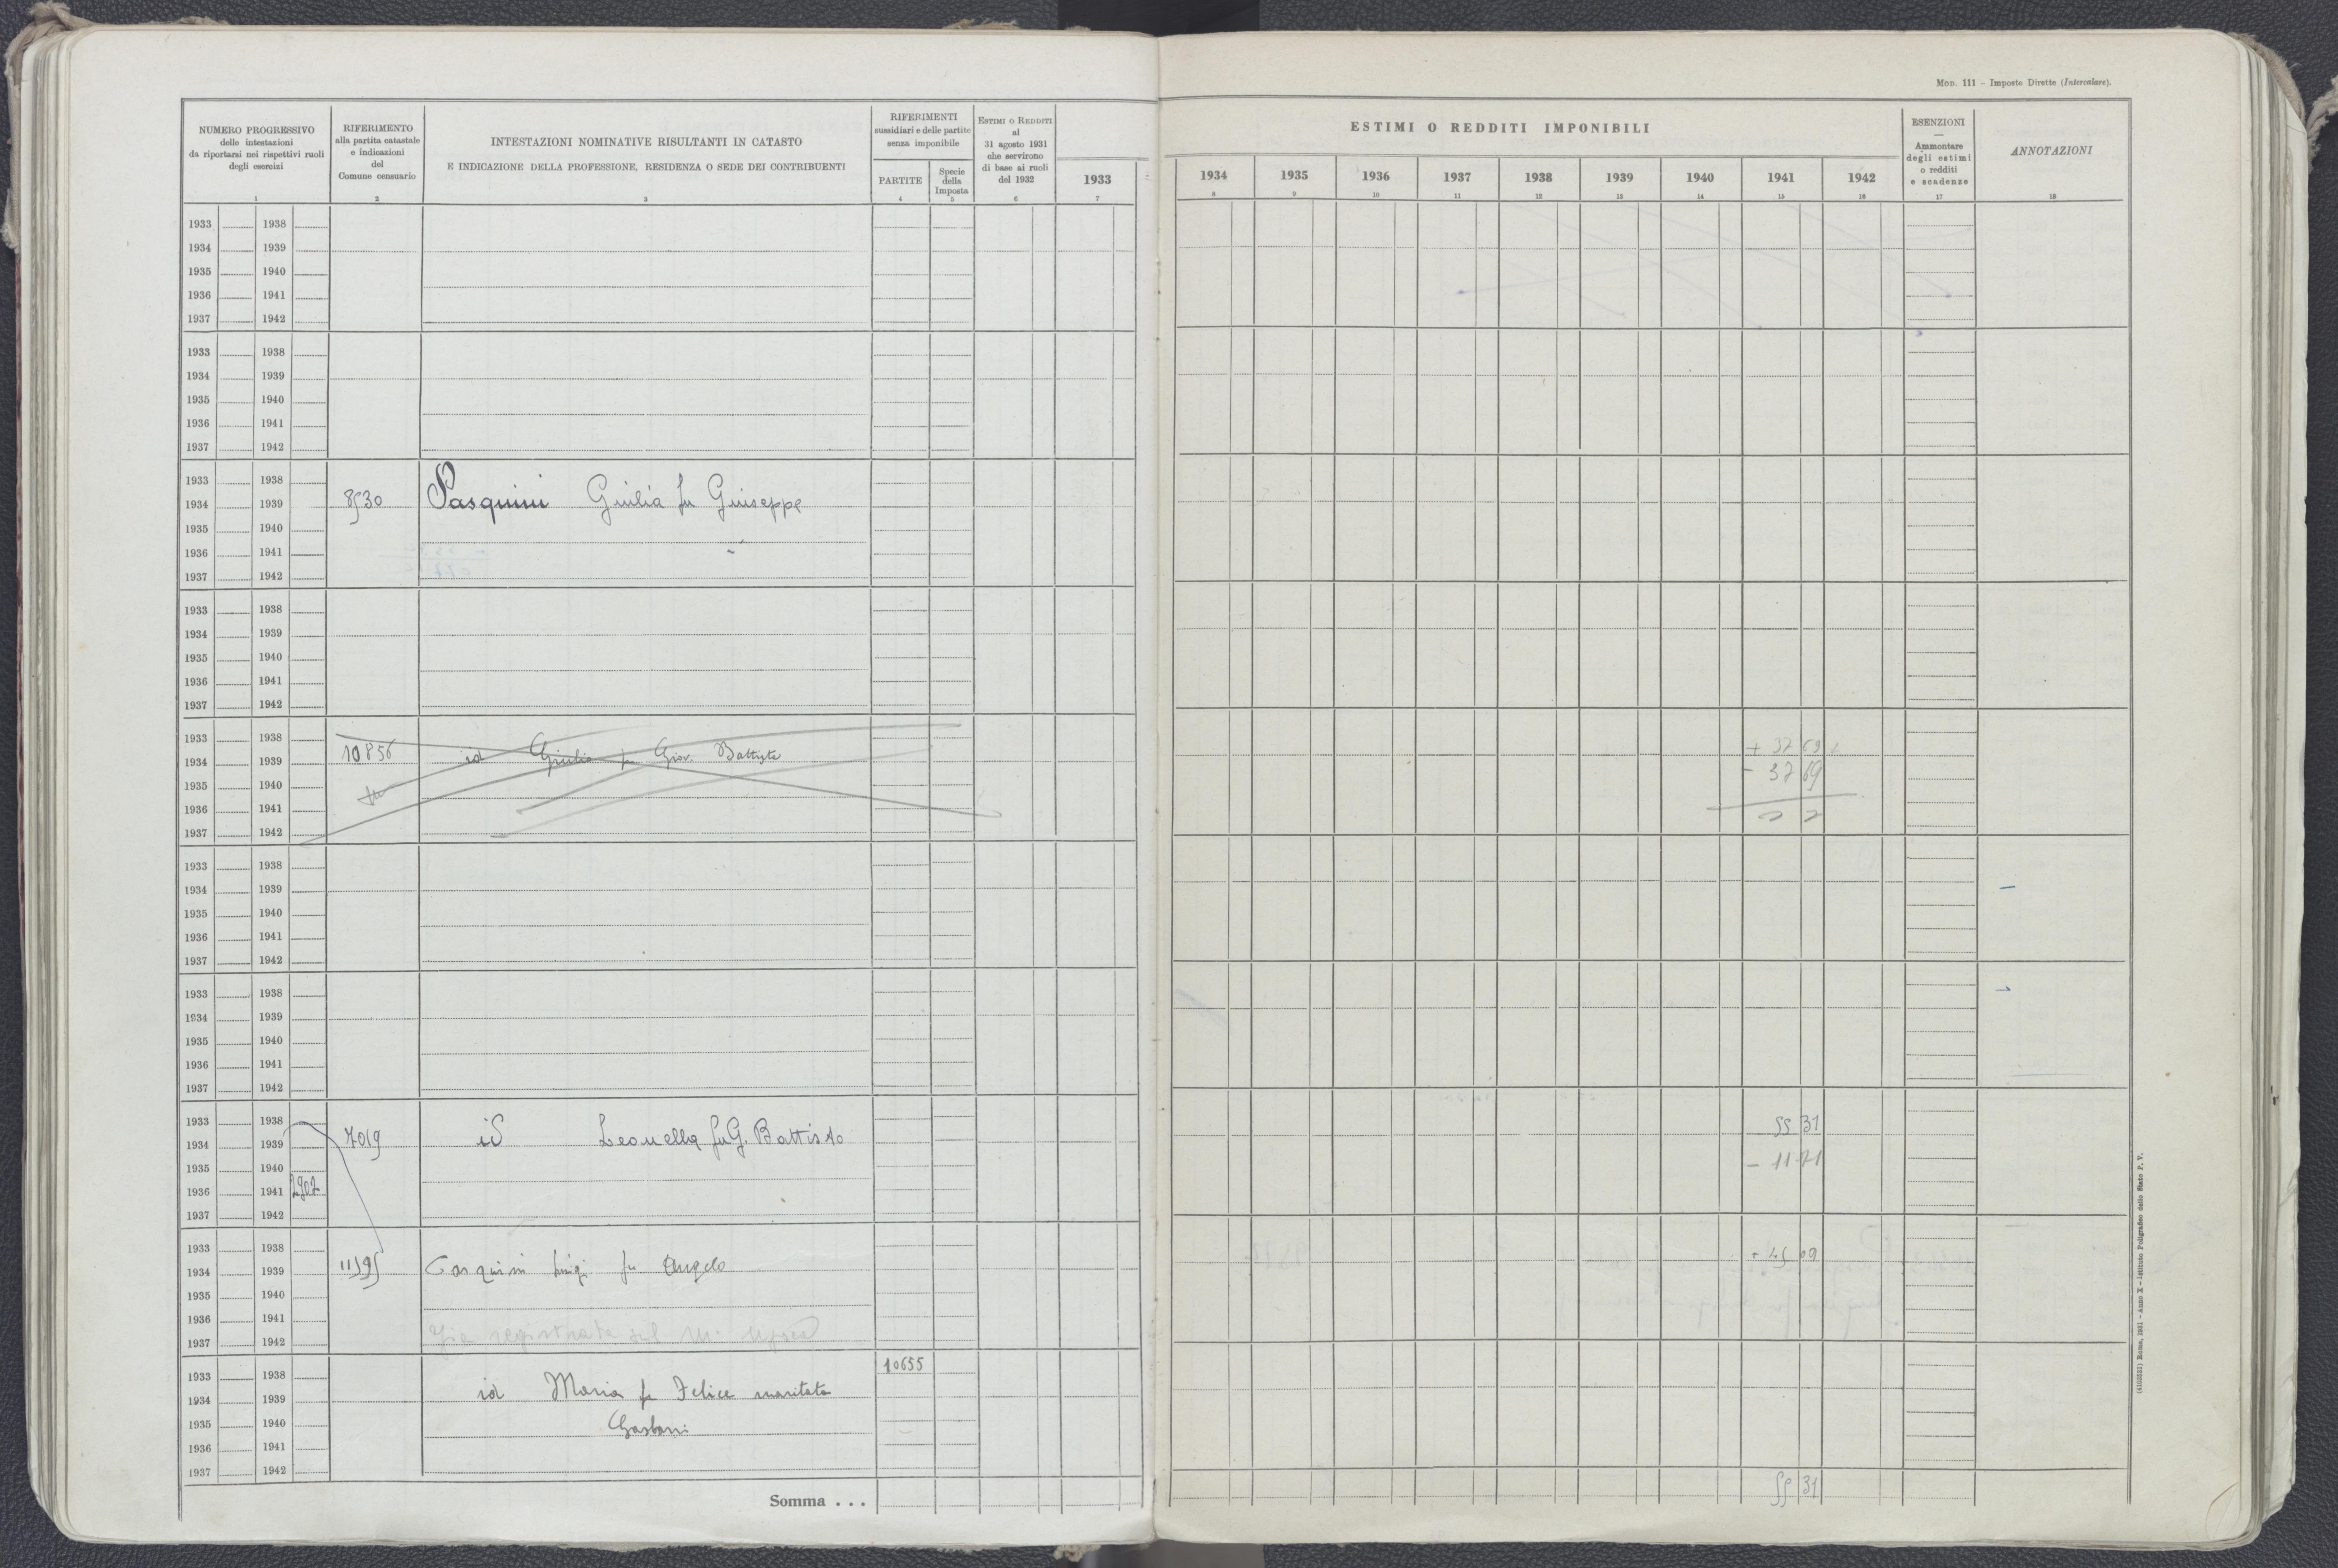 MOD. 111 – Imposte Dirette (Intercalare).
NUMERO PROGRESSIVO
delle intestazioni
da riportarsi nei rispettivi ruoli
degli esercizi
1
RIFERIMENTO
alla partita catastale
e indicazioni
del
Comune censuario
2
INTESTAZIONI NOMINATIVE RISULTANTI IN CATASTO
E INDICAZIONE DELLA PROFESSIONE, RESIDENZA O SEDE DEI CONTRIBUENTI
3
RIFERIMENTI
sussidiari e delle partite
senza imponibile
PARTITE
4
Specie
della
Imposta
5
ESTIMI O REDDITI
al
31 agosto 1931
che servirono
di base ai ruoli
del 1932
6
1933
7
ESTIMI O REDDITI IMPONIBILI
1934 1935 1936 1937 1938 1939 1940 1941 1942
8 9 10 11 12 13 14 15 16
ESENZIONI
—
Ammontare
degli estimi
o redditi
e scadenze
17
ANNOTAZIONI
18
1933 1938
1934 1939
1935 1940
1936 1941
1937 1942
1933 1938
1934 1939
1935 1940
1936 1941
1937 1942
1933 1938
1934 1939 8530 Pasquini Giulia fu Giuseppe
1935 1940
1936 1941
1937 1942
1933 1938
1934 1939
1935 1940
1936 1941
1937 1942
1933 1938
1934 1939 10856 id Giulia fu Giov. Battista + 37 69
1935 1940 - 37 69
1936 1941
1937 1942
1933 1938
1934 1939
1935 1940
1936 1941
1937 1942
1933 1938
1934 1939
1935 1940
1936 1941
1937 1942
1933 1938 55 31
1934 1939 7019 id Leonella fu G. Battista
1935 1940 - 11 71
1936 1941 2902
1937 1942
1933 1938
1934 1939 11595 Pasquini Luigi fu Angelo
1935 1940
1936 1941
1937 1942 Già registrata sul
1933 1938 10655
1934 1939 id Maria fu Felice maritata
1935 1940
1936 1941
1937 1942
Somma . . . 55 31
(4103531) Roma, 1931 – Anno X – Istituto Poligrafico dello Stato P. V.